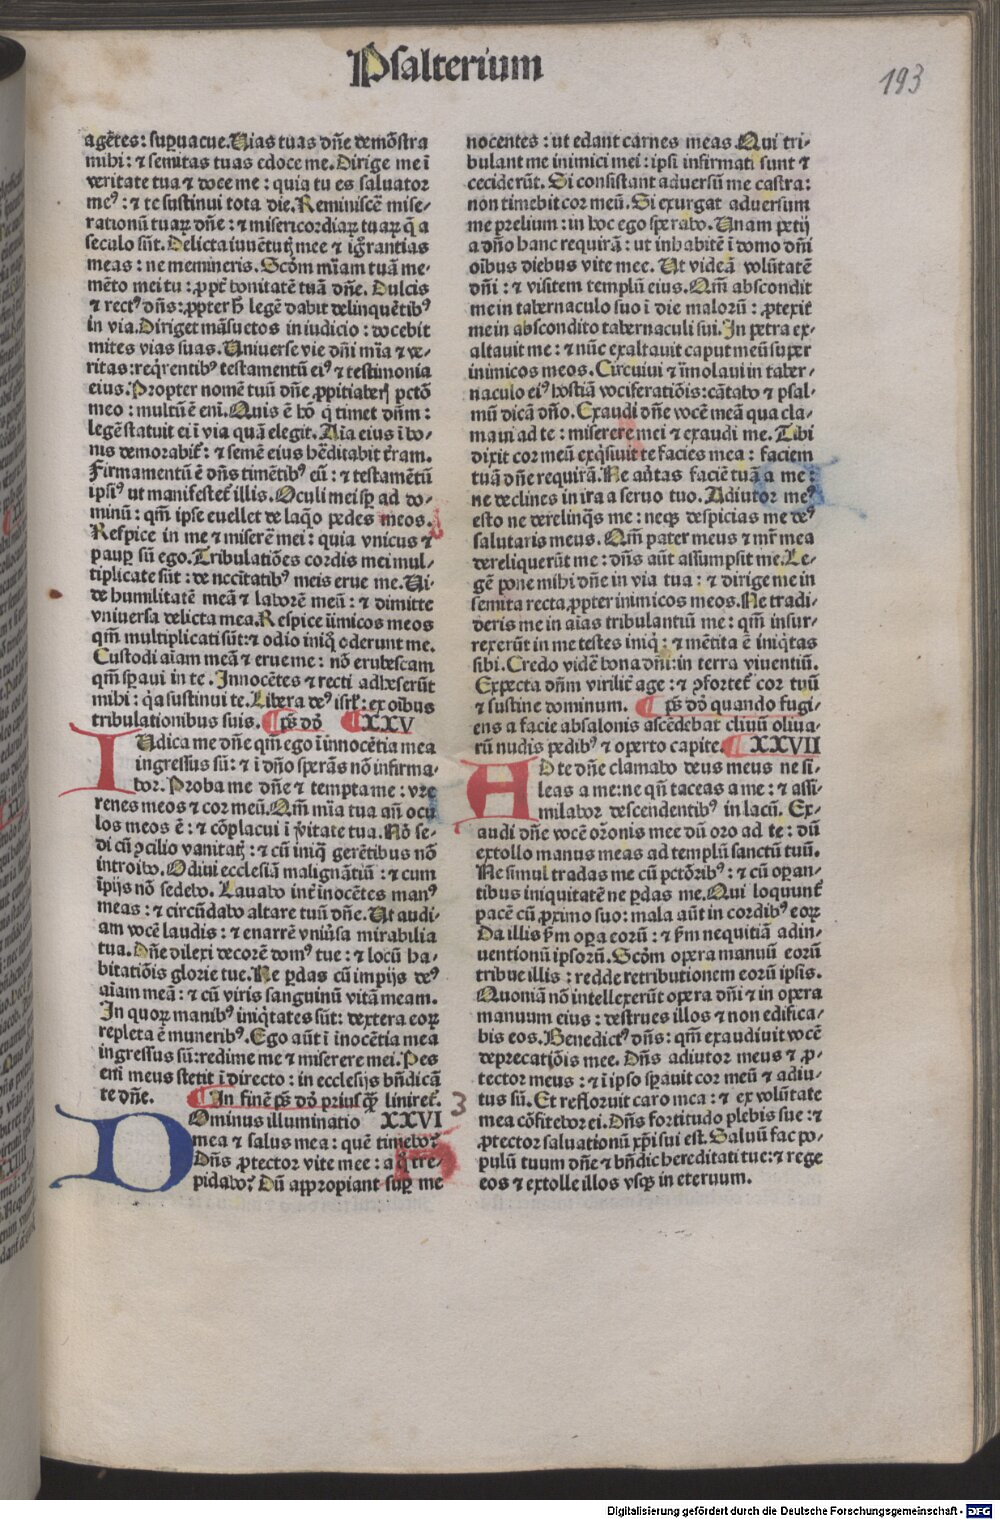 Psalterium
193
agētes: supuacue. Uias tuas dñe demōstra
mihi: ⁊ semitas tuas edoce me. Dirige me ī
veritate tua ⁊ doce me: quia tu es saluator
meꝰ: ⁊ te sustinui tota die. Reminiscē mise⸗
rationū tuaꝝ dñe: ⁊ misericordiaꝝ tuaꝝ q̄ a
seculo sūt. Delicta iuuētutꝭ mee ⁊ igrantias
meas: ne memineris. Scōm mīam tuā me⸗
mēto mei tu: ꝓpt̄ bonitatē tuā dñe. Dulcis
⁊ rectꝰ dñs: ꝓpter h̄ legē dabit delinquētibꝰ
in via. Diriget māsuetos in iudicio: docebit
mites vias suas. Uniuerse vie dñi mīa ⁊ ve⸗
ritas: reqrentibꝰ testamentū eiꝰ ⁊ testimonia
eius. Propter nomē tuū dñe ꝓpitiaberꝭ pctō
meo: multū ē eni. Quis ē hō q̇ timet dñm:
legē statuit ei ī via quā elegit. Aīa eius ī bo⸗
nis demorabit̄: ⁊ semē eius hēditabit t̄ram.
Firmamentū ē dñs timētibꝰ eū: ⁊ testamētū
ipsiꝰ ut manifestet̄ illis. Oculi mei sꝑ ad do⸗
minū: qm̄ ipse euellet de laq̇o pedes meos.
Respice in me ⁊ miserē mei: quia vnicus ⁊
pauꝑ sū ego. Tribulatiōes cordis mei mul⸗
tiplicate sūt: de nccītatibꝰ meis erue me. Ui⸗
de humilitatē meā ⁊ laborē meū: ⁊ dimitte
vniuersa delicta mea. Respice iīmicos meos
qm̄ multiplicati sūt: ⁊ odio iniq̇ oderunt me.
Custodi aīam meā ⁊ erue me: nō erubescam
qm̄ sꝑaui in te. Innocētes ⁊ recti adheserūt
mihi: q̇a sustinui te. Libera deꝰ isrl̄: ex oībus
tribulationibus suis. ¶ ps̄ dō ¶ XXV
IUdica me dñe qm̄ ego ī innocētia mea
ingressus sū: ⁊ ī dño sperās nō infirma⸗
bor. Proba me dñe ⁊ tempta me: vre
renes meos ⁊ cor meū. Qm̄ mīa tua añ ocu
los meos ē: ⁊ cōplacui ī v̄itate tua. Nō se⸗
di cū ꝯcilio vanitatꝭ: ⁊ cū iniq̇ gerētibus nō
introibo. Odiui ecclesiā malignātiū: ⁊ cum
īpijs nō sedebo. Lauabo int̄ inocētes manꝰ
meas: ⁊ circūdabo altare tuū dñe. Ut audi⸗
am vocē laudis: ⁊ enarrē vniūsa mirabilia
tua. Dñe dilexi decorē domꝰ tue: ⁊ locū ha⸗
bitatiōis glorie tue. Ne ꝑdas cū impijs deꝰ
aīam meā: ⁊ cū viris sanguinū vitā meam.
In quoꝝ manibꝰ iniq̇tates sūt: dextera eoꝝ
repleta ē muneribꝰ. Ego aūt ī inocētia mea
ingressus sū: redime me ⁊ miserere mei. Pes
eni meus stetit ī directo: in ecclesijs bn̄dicā
te dñe. ¶ In finē ps̄ dō priusꝗ̄ liniret̄.
DOminus illuminatio XXVI
mea ⁊ salus mea: quē timebo?
Dñs ꝓtector vite mee: a q̇ tre⸗
pidabo? Dū appropiant suꝑ me
nocentes: ut edant carnes meas. Qui tri⸗
bulant me inimici mei: ipsi infirmati sunt ⁊
ceciderūt. Si consistant aduersū me castra:
non timebit cor meū. Si exurgat aduersum
me prelium: in hoc ego sperabo. Unam petij
a dño hanc requirā: ut inhabitē ī domo dñi
oībus diebus vite mee. Ut videā volūtatē
dñi: ⁊ visitem templū eius. Qm̄ abscondit
me in tabernaculo suo ī die malorū: ꝓtexit
me in abscondito tabernaculi sui. In petra ex⸗
altauit me: ⁊ nūc exaltauit caput meū super
inimicos meos. Circuiui ⁊ īmolaui in taber⸗
naculo eiꝰ hostiā vociferatiōis: cātabo ⁊ psal⸗
mū dicā dño. Exaudi dñe vocē meā qua cla⸗
maui ad te: miserere mei ⁊ exaudi me. Tibi
dixit cor meū exq̇siuit te facies mea: faciem
tuā dñe requirā. Ne auertas faciē tuā a me:
ne declines in ira a seruo tuo. Adiutor meꝰ
esto ne derelinq̇s me: neqꝫ despicias me deꝰ
salutaris meus. Qm̄ pater meus ⁊ mr̄ mea
dereliquerūt me: dñs aūt assūmpsit me. Le⸗
gē pone mihi dñe in via tua: ⁊ dirige me in
semita recta ꝓpter inimicos meos. Ne tradi⸗
deris me in aīas tribulantiū me: qm̄ insur⸗
rexerūt in me testes iniq̇: ⁊ mētita ē iniq̇tas
sibi. Credo vidē bona dñi: in terra viuentiū.
Expecta dñm virilit̄ age: ⁊ ꝯfortet̄ cor tuū
⁊ sustine dominum. ¶ ps̄ dō quando fugi⸗
ens a facie absalonis ascēdebat cliuū oliua⸗
rū nudis pedibꝰ ⁊ operto capite. ¶ XXVII
AD te dñe clamabo deus meus ne si⸗
leas a me: ne qn̄ taceas a me: ⁊ assi⸗
milabor descendentibꝰ in lacū. Ex⸗
audi dñe vocē or̄onis mee dū oro ad te: dū
extollo manus meas ad templū sanctū tuū.
Ne simul tradas me cū pctōribꝰ: ⁊ cū oꝑan⸗
tibus iniquitatē ne ꝑdas me. Qui loquunt̄
pacē cū ꝓximo suo: mala aūt in cordibꝰ eoꝝ
Da illis s̄m oꝑa eorū: ⁊ s̄m nequitiā adin⸗
uentionū ipsorū. Scōm opera manuū eorū
tribue illis: redde retributionem eorū ipsis.
Quoniā nō intellexerūt opera dñi ⁊ in opera
manuum eius: destrues illos ⁊ non edifica⸗
bis eos. Benedictꝰ dñs: qm̄ exaudiuit vocē
deprecatiōis mee. Dñs adiutor meus ⁊ ꝓ⸗
tector meus: ⁊ ī ipso sꝑauit cor meū ⁊ adiu⸗
tus sū. Et refloruit caro mea: ⁊ ex volūtate
mea cōfitebor ei. Dñs fortitudo plebis sue: ⁊
ꝓtector saluationū xp̄i sui est. Saluū fac po⸗
pulū tuum dñe ⁊ bn̄dic hereditati tue: ⁊ rege
eos ⁊ extolle illos vsqꝫ in eternum.
3
Digitalisierung gefördert durch die Deutsche Forschungsgemeinschaft - DFG